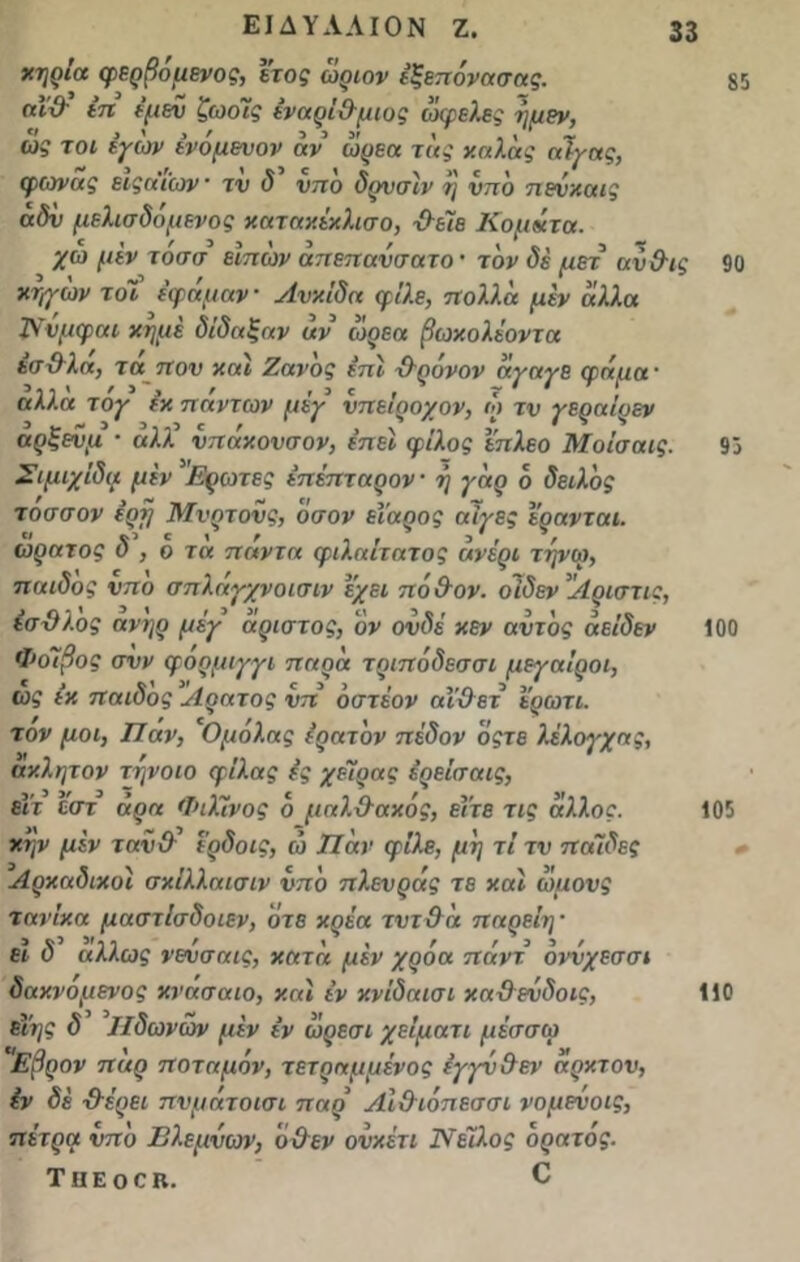 ΕΙΔΥΛΛΙΟΝ Ζ. 33
κηρία φερβόμενος, ἔτος ὥριον ἐξεπόνασας. 85
αἴθ’ ἐπ’ ἐμεῦ ζωοῖς ἐναρίθμιος ὤφελες ἦμεν,
ὥς τοι ἐγὼν ἐνόμευον ἀν’ ὤρεα τὰς καλὰς αἶγας,
φωνᾶς εἰςαΐων· τὺ δ’ ὑπὸ δρυσὶν ἢ ὑπὸ πεύκαις
ἁδὺ μελισδόμενος κατακέκλισο, θεῖε Κομᾶτα.
χὡ μὲν τόσσ’ εἰπὼν ἀπεπαύσατο· τὸν δὲ μετ’ αὖθις 90
κἠγὼν τοῖ’ ἐφάμαν· Λυκίδα φίλε, πολλὰ μὲν ἄλλα
Νύμφαι κἠμὲ δίδαξαν ἀν’ ὤρεα βωκολέοντα
ἐσθλά, τά που καὶ Ζανὸς ἐπὶ θρόνον ἄγαγε φάμα·
ἀλλὰ τόγ’ ἐκ πάντων μέγ’ ὑπείροχον, ᾧ τυ γεραίρεν
ἀρξεῦμ’· ἀλλ’ ὑπάκουσον, ἐπεὶ φίλος ἔπλεο Μοίσαις. 95
Σιμιχίδᾳ μὲν Ἔρωτες ἐπέπταρον· ἦ γὰρ ὁ δειλὸς
τόσσον ἐρῇ Μυρτοῦς, ὅσον εἴαρος αἶγες ἔρανται.
ὥρατος δ’, ὁ τὰ πάντα φιλαίτατος ἀνέρι τήνῳ,
παιδὸς ὑπὸ σπλάγχνοισιν ἔχει πόθον. οἶδεν Ἄριστις,
ἐσθλὸς ἀνὴρ μέγ’ ἄριστος, ὃν οὐδέ κεν αὐτὸς ἀείδεν 100
Φοῖβος σὺν φόρμιγγι παρὰ τριπόδεσσι μεγαίροι,
ὡς ἐκ παιδὸς Ἄρατος ὑπ’ ὀστέον αἴθετ’ ἔρωτι.
τόν μοι, Πάν, Ὁμόλας ἐρατὸν πέδον ὅςτε λέλογχας,
ἄκλητον τήνοιο φίλας ἐς χεῖρας ἐρείσαις,
εἴτ’ ἔστ’ ἄρα Φιλῖνος ὁ μαλθακός, εἴτε τις ἄλλος. 105
κἢν μὲν ταῦθ’ ἕρδοις, ὦ Πὰν φίλε, μή τί τυ παῖδες
Ἀρκαδικοὶ σκίλλαισιν ὑπὸ πλευράς τε καὶ ὤμους
τανίκα μαστίσδοιεν, ὅτε κρέα τυτθὰ παρείη·
εἰ δ’ ἄλλως νεύσαις, κατὰ μὲν χρόα πάντ’ ὀνύχεσσι
δακνόμενος κνάσαιο, καὶ ἐν κνίδαισι καθεύδοις, 110
εἴης δ’ Ἠδωνῶν μὲν ἐν ὤρεσι χείματι μέσσῳ
Ἕβρον πὰρ ποταμόν, τετραμμένος ἐγγύθεν ἄρκτου,
ἐν δὲ θέρει πυμάτοισι παρ’ Αἰθιόπεσσι νομεύοις,
πέτρᾳ ὑπὸ Βλεμύων, ὅθεν οὐκέτι Νεῖλος ὁρατός.
THEOCR. C